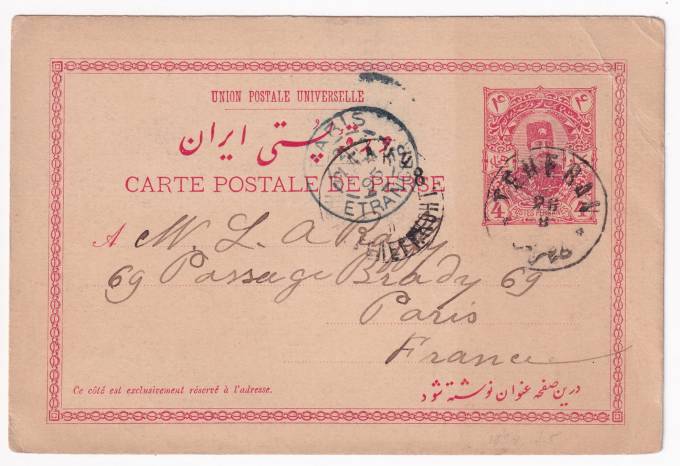 UNION POSTALE UNIVERSELLE
ورقه پستی ایران
CARTE POSTALE DE PERSE
۴ ۴
4 4
POSTES PERSANES
TEHERAN
26
8
PARIS
ETRANGER
A M. L. A
69 Passage Brady 69
Paris
France
Ce côté est exclusivement réservé à l'adresse.
درین صفحه عنوان نوشته شود